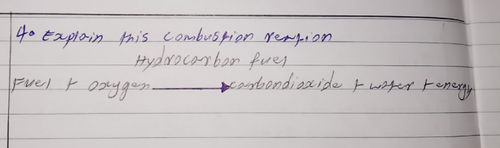 4. Explain this combustion reaction
Hydrocarbon fuel
Fuel + oxygen → carbondioxide + water + energy